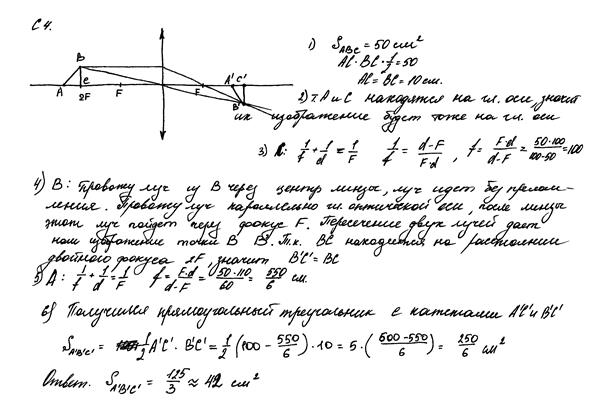 С4.
B
A C 2F F F A' C'
B'
1) S_ABC = 50 см²
AC · BC · 1/2 = 50
AC = BC = 10 см.
2) т. A и C находятся на гл. оси, значит
их изображение будет тоже на гл. оси
3) C: 1/f + 1/d = 1/F 1/f = (d-F)/(F·d), f = (F·d)/(d-F) = (50·100)/(100-50) = 100
4) B: Провожу луч из B через центр линзы, луч идет без прелом-
ления. Провожу луч параллельно гл. оптической оси, после линзы
этот луч пойдет через фокус F. Пересечение двух лучей дает
нам изображение точки B B'. Т.к. BC находится на расстоянии
двойного фокуса 2F, значит B'C' = BC
5) A: 1/f + 1/d = 1/F f = (F·d)/(d-F) = (50·110)/60 = 550/6 см.
6) Получился прямоугольный треугольник с катетами A'C' и B'C'
S_A'B'C' = 1/2 A'C' · B'C' = 1/2 (100 - 550/6) · 10 = 5 · ((600-550)/6) = 250/6 см²
Ответ. S_A'B'C' = 125/3 ≈ 42 см²